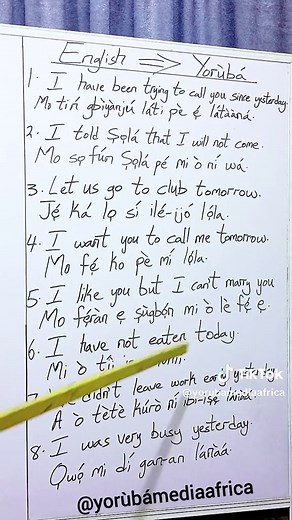 English => Yorùbá
1. I have been trying to call you since yesterday.
Mo tiń gbìyànjú láti pè ẹ́ látàáná.
2. I told Ṣọlá that I will not come.
Mo sọ fún Ṣọlá pé mi ò ní wá.
3. Let us go to club tomorrow.
Jẹ́ ká lọ sí ilé-ijó lọ́la.
4. I want you to call me tomorrow.
Mo fẹ́ kọ pè mí lọ́la.
5. I like you but I can't marry you
Mo fẹ́ràn ẹ ṣùgbọ́n mi ò lè fẹ́ ẹ.
6. I have not eaten today.
Mi ò tíì
TikTok
@yorubamediaafrica
didn't leave work early yesterday
A ò tètè kúrò ní ibi-iṣẹ́
8. I was very busy yesterday.
Ọwọ́ mi dí gan-an lánàá.
@yorùbámediaafrica